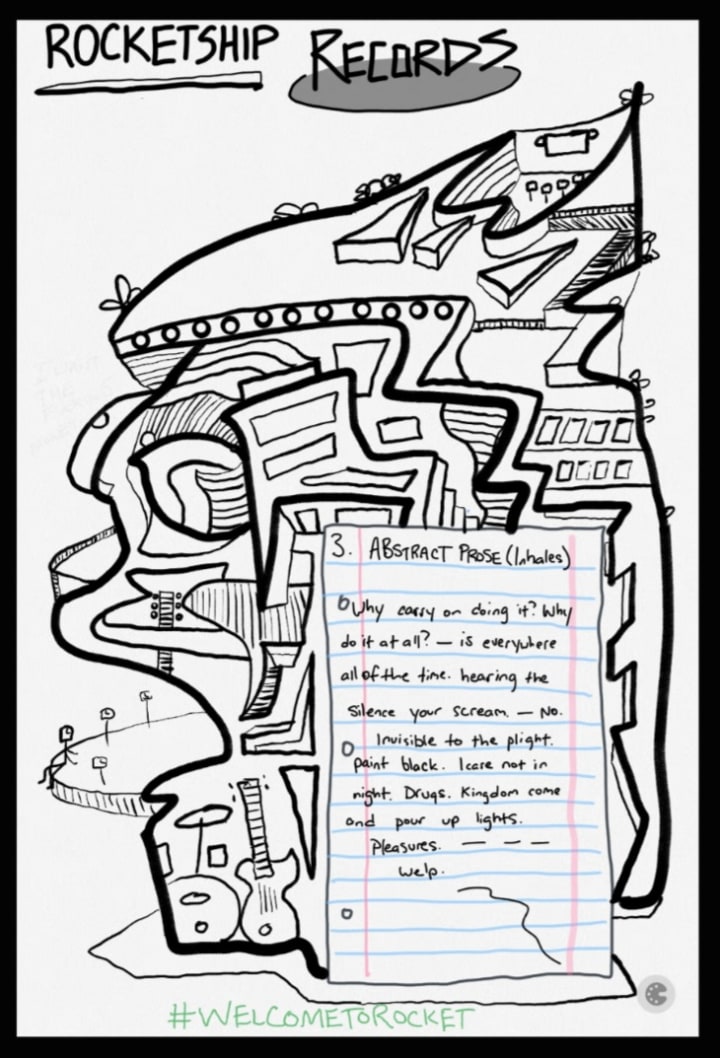 ROCKETSHIP RECORDS
3. ABSTRACT PROSE (Inhales)
Why carry on doing it? Why
do it at all? — is everywhere
all of the time. hearing the
Silence your scream. — No.
Invisible to the plight.
paint black. Icare not in
night. Drugs. Kingdom come
and pour up lights.
Pleasures. — — —
Welp.
#WELCOMETOROCKET